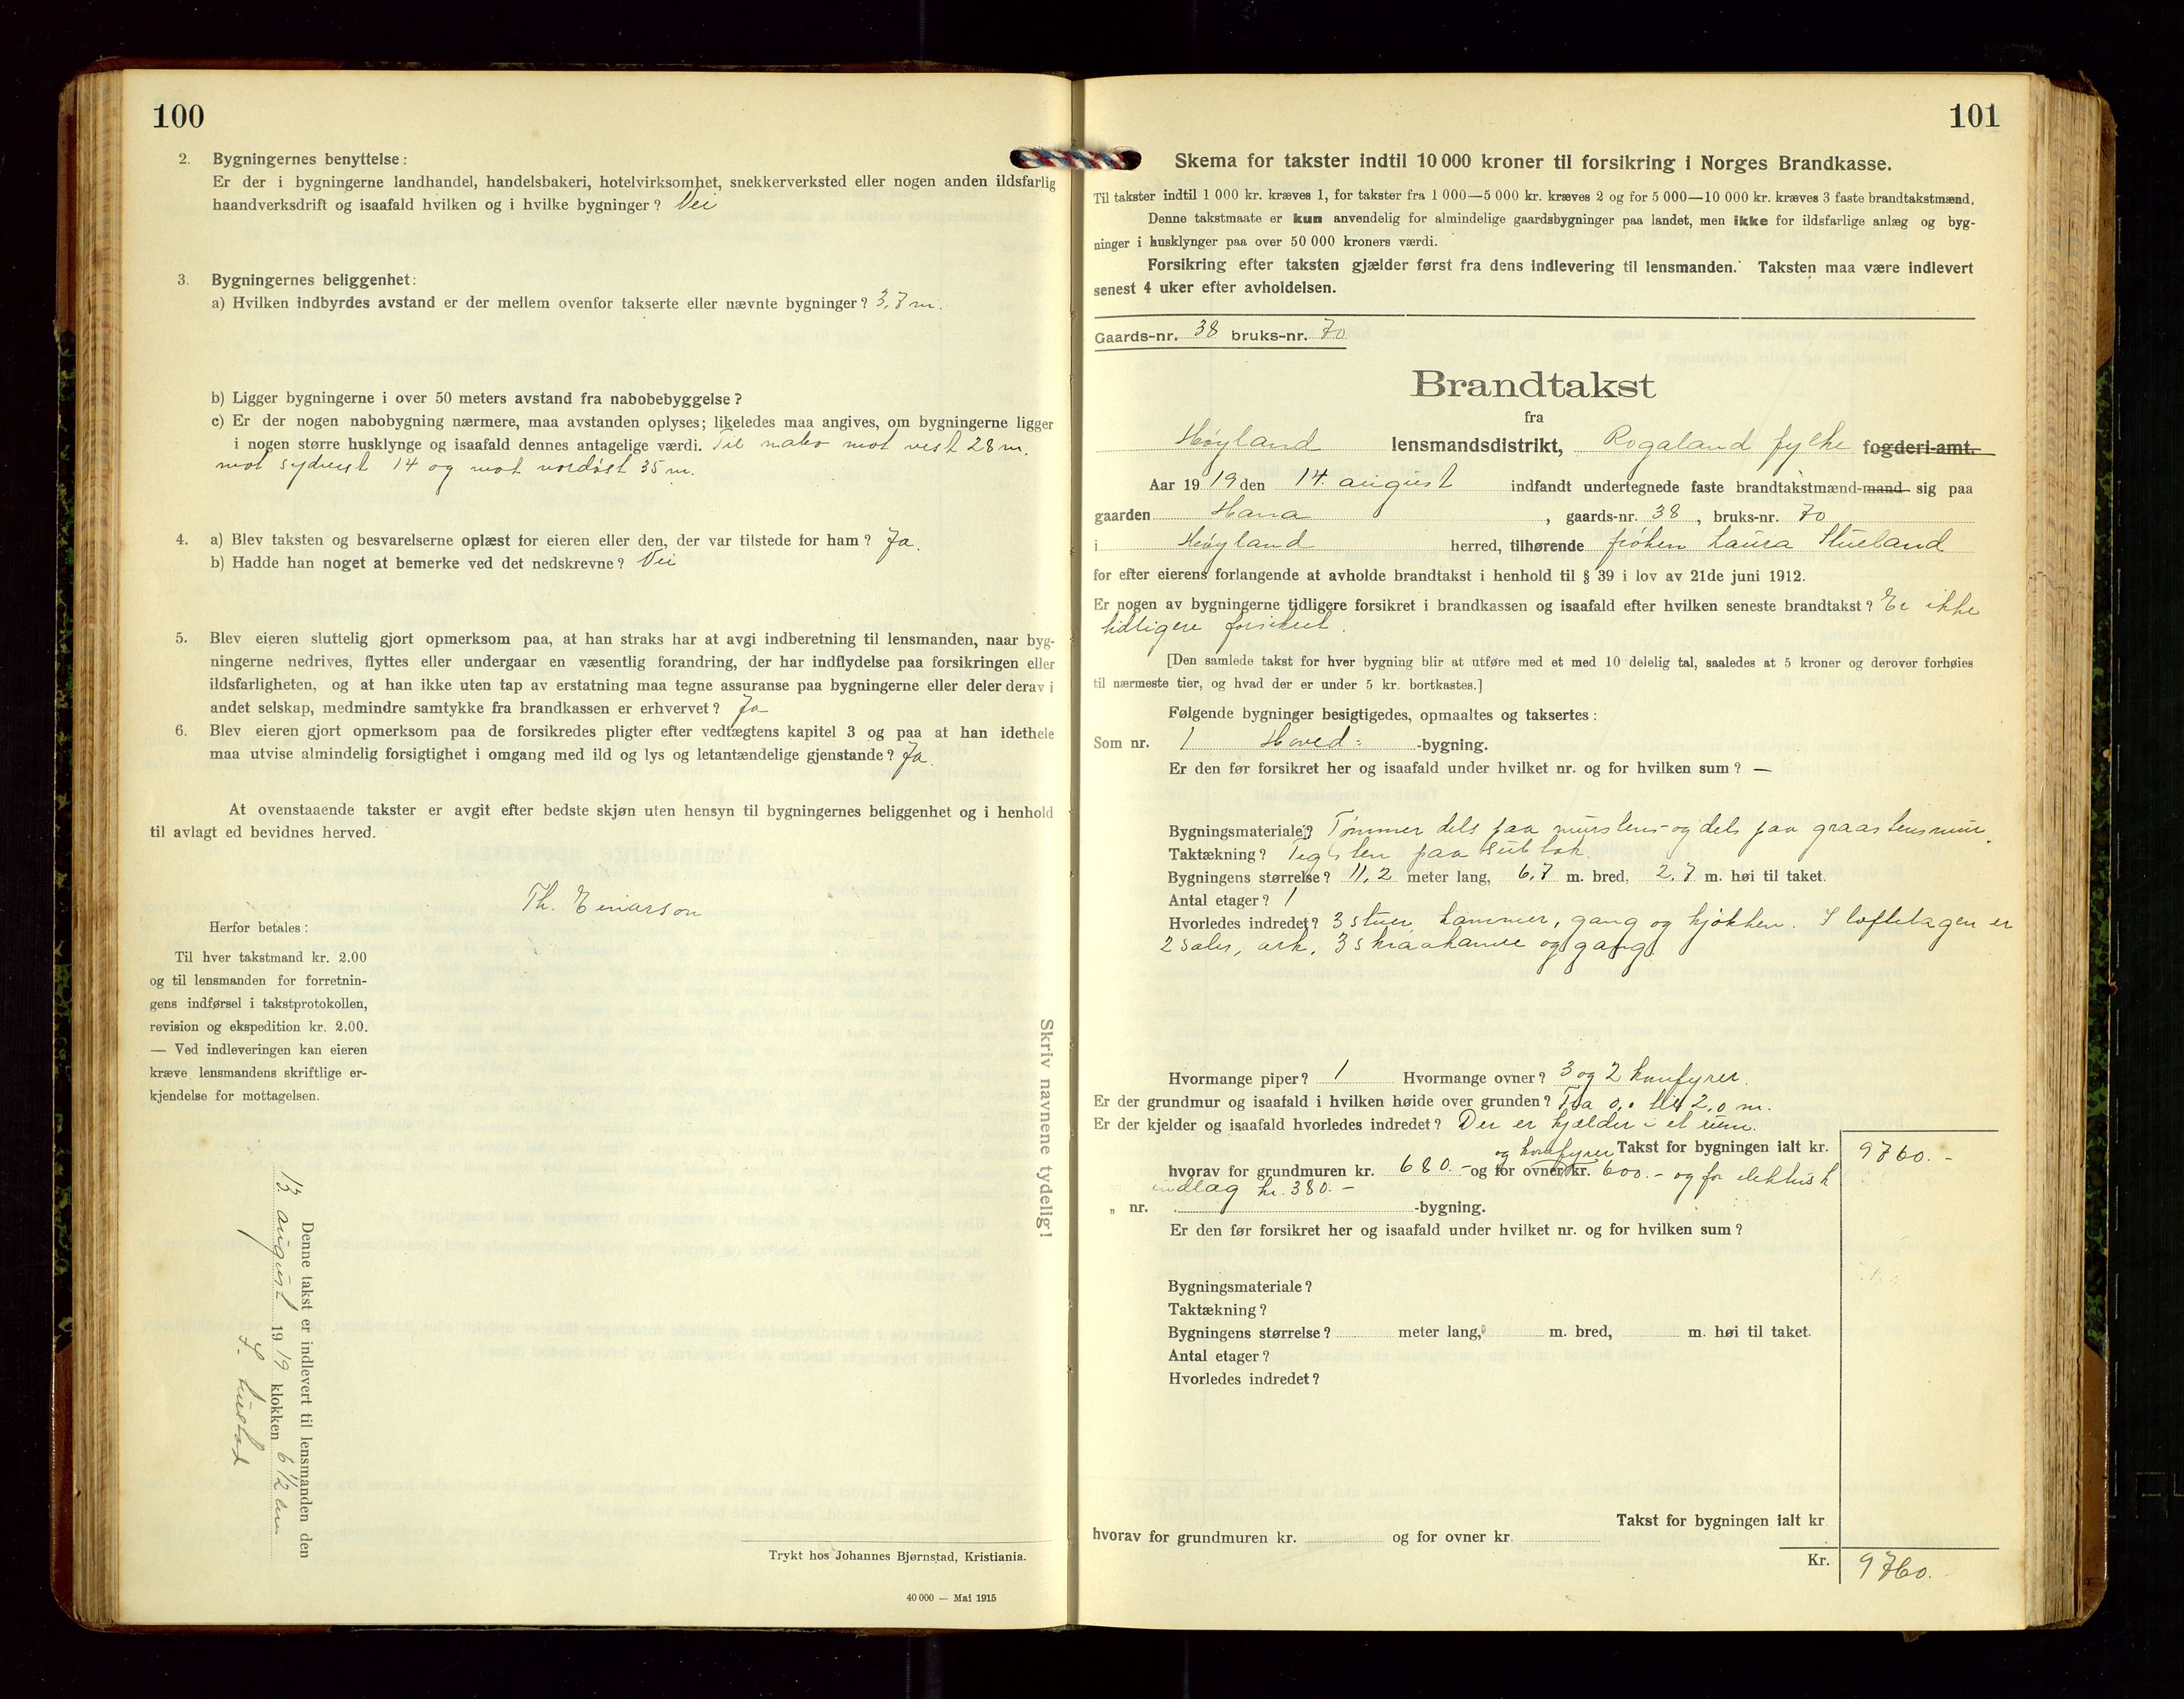 100
2. Bygningernes benyttelse:
Er der i bygningerne landhandel, handelsbakeri, hotelvirksomhet, snekkerverksted eller nogen anden ildsfarlig
haandverksdrift og isaafald hvilken og i hvilke bygninger? Nei
3. Bygningernes beliggenhet:
a) Hvilken indbyrdes avstand er der mellem ovenfor takserte eller nævnte bygninger? 3,7 m.
b) Ligger bygningerne i over 50 meters avstand fra nabobebyggelse?
c) Er der nogen nabobygning nærmere, maa avstanden oplyses; likeledes maa angives, om bygningerne ligger
i nogen større husklynge og isaafald dennes antagelige værdi. Til nabo mot vest 28 m.
mot sydvest 14 og mot nordöst 35 m.
4. a) Blev taksten og besvarelserne oplæst for eieren eller den, der var tilstede for ham? Ja.
b) Hadde han noget at bemerke ved det nedskrevne? Nei
5. Blev eieren sluttelig gjort opmerksom paa, at han straks har at avgi indberetning til lensmanden, naar byg-
ningerne nedrives, flyttes eller undergaar en væsentlig forandring, der har indflydelse paa forsikringen eller
ildsfarligheten, og at han ikke uten tap av erstatning maa tegne assuranse paa bygningerne eller deler derav i
andet selskap, medmindre samtykke fra brandkassen er erhvervet? Ja
6. Blev eieren gjort opmerksom paa de forsikredes pligter efter vedtægtens kapitel 3 og paa at han idethele
maa utvise almindelig forsigtighet i omgang med ild og lys og letantændelige gjenstande? Ja.
At ovenstaaende takster er avgit efter bedste skjøn uten hensyn til bygningernes beliggenhet og i henhold
til avlagt ed bevidnes herved.
Th. Einarson
Herfor betales:
Til hver takstmand kr. 2.00
og til lensmanden for forretnin-
gens indførsel i takstprotokollen,
revision og ekspedition kr. 2.00.
— Ved indleveringen kan eieren
kræve lensmandens skriftlige er-
kjendelse for mottagelsen.
Skriv navnene tydelig!
Denne takst er indlevert til lensmanden den
13. august 1919 klokken 6 1/2
Trykt hos Johannes Bjørnstad, Kristiania.
40 000 — Mai 1915
101
Skema for takster indtil 10 000 kroner til forsikring i Norges Brandkasse.
Til takster indtil 1 000 kr. kræves 1, for takster fra 1 000—5 000 kr. kræves 2 og for 5 000—10 000 kr. kræves 3 faste brandtakstmænd.
Denne takstmaate er kun anvendelig for almindelige gaardsbygninger paa landet, men ikke for ildsfarlige anlæg og byg-
ninger i husklynger paa over 50 000 kroners værdi.
Forsikring efter taksten gjælder først fra dens indlevering til lensmanden. Taksten maa være indlevert
senest 4 uker efter avholdelsen.
Gaards-nr. 38 bruks-nr. 70
Brandtakst
fra
Høyland lensmandsdistrikt, Rogaland fylke fogderi-amt.
Aar 1919 den 14. august indfandt undertegnede faste brandtakstmænd-mand sig paa
gaarden Hana, gaards-nr. 38, bruks-nr. 70
i Høyland herred, tilhørende frøken Laura Stueland
for efter eierens forlangende at avholde brandtakst i henhold til § 39 i lov av 21de juni 1912.
Er nogen av bygningerne tidligere forsikret i brandkassen og isaafald efter hvilken seneste brandtakst? Er ikke
tidligere forsikret.
[Den samlede takst for hver bygning blir at utføre med et med 10 delelig tal, saaledes at 5 kroner og derover forhøies
til nærmeste tier, og hvad der er under 5 kr. bortkastes.]
Følgende bygninger besigtigedes, opmaaltes og taksertes:
Som nr. 1 Hoved- -bygning.
Er den før forsikret her og isaafald under hvilket nr. og for hvilken sum? —
Bygningsmateriale? Tømmer dels paa murstens- og dels paa graastensmur.
Taktækning? Teglsten paa sutak.
Bygningens størrelse? 11,2 meter lang, 6,7 m. bred, 2,7 m. høi til taket.
Antal etager? 1
Hvorledes indredet? 3 stuer, kammer, gang og kjøkken. I loftetagen er
2 saler, ark, 3 skraakamre og gang.
Hvormange piper? 1 Hvormange ovner? 3 og 2 komfyrer.
Er der grundmur og isaafald i hvilken høide over grunden? Fra 0, til 2,0 m.
Er der kjelder og isaafald hvorledes indredet? Der er kjælder i et rum.
Takst for bygningen ialt kr. 9760.-
hvorav for grundmuren kr. 680.- og for ovner og komfyrer kr. 600.- og for elektrisk
indlag kr. 380.-
„ nr. -bygning.
Er den før forsikret her og isaafald under hvilket nr. og for hvilken sum?
Bygningsmateriale?
Taktækning?
Bygningens størrelse? meter lang, m. bred, m. høi til taket.
Antal etager?
Hvorledes indredet?
Takst for bygningen ialt kr
hvorav for grundmuren kr. og for ovner kr.
Kr. 9760.-